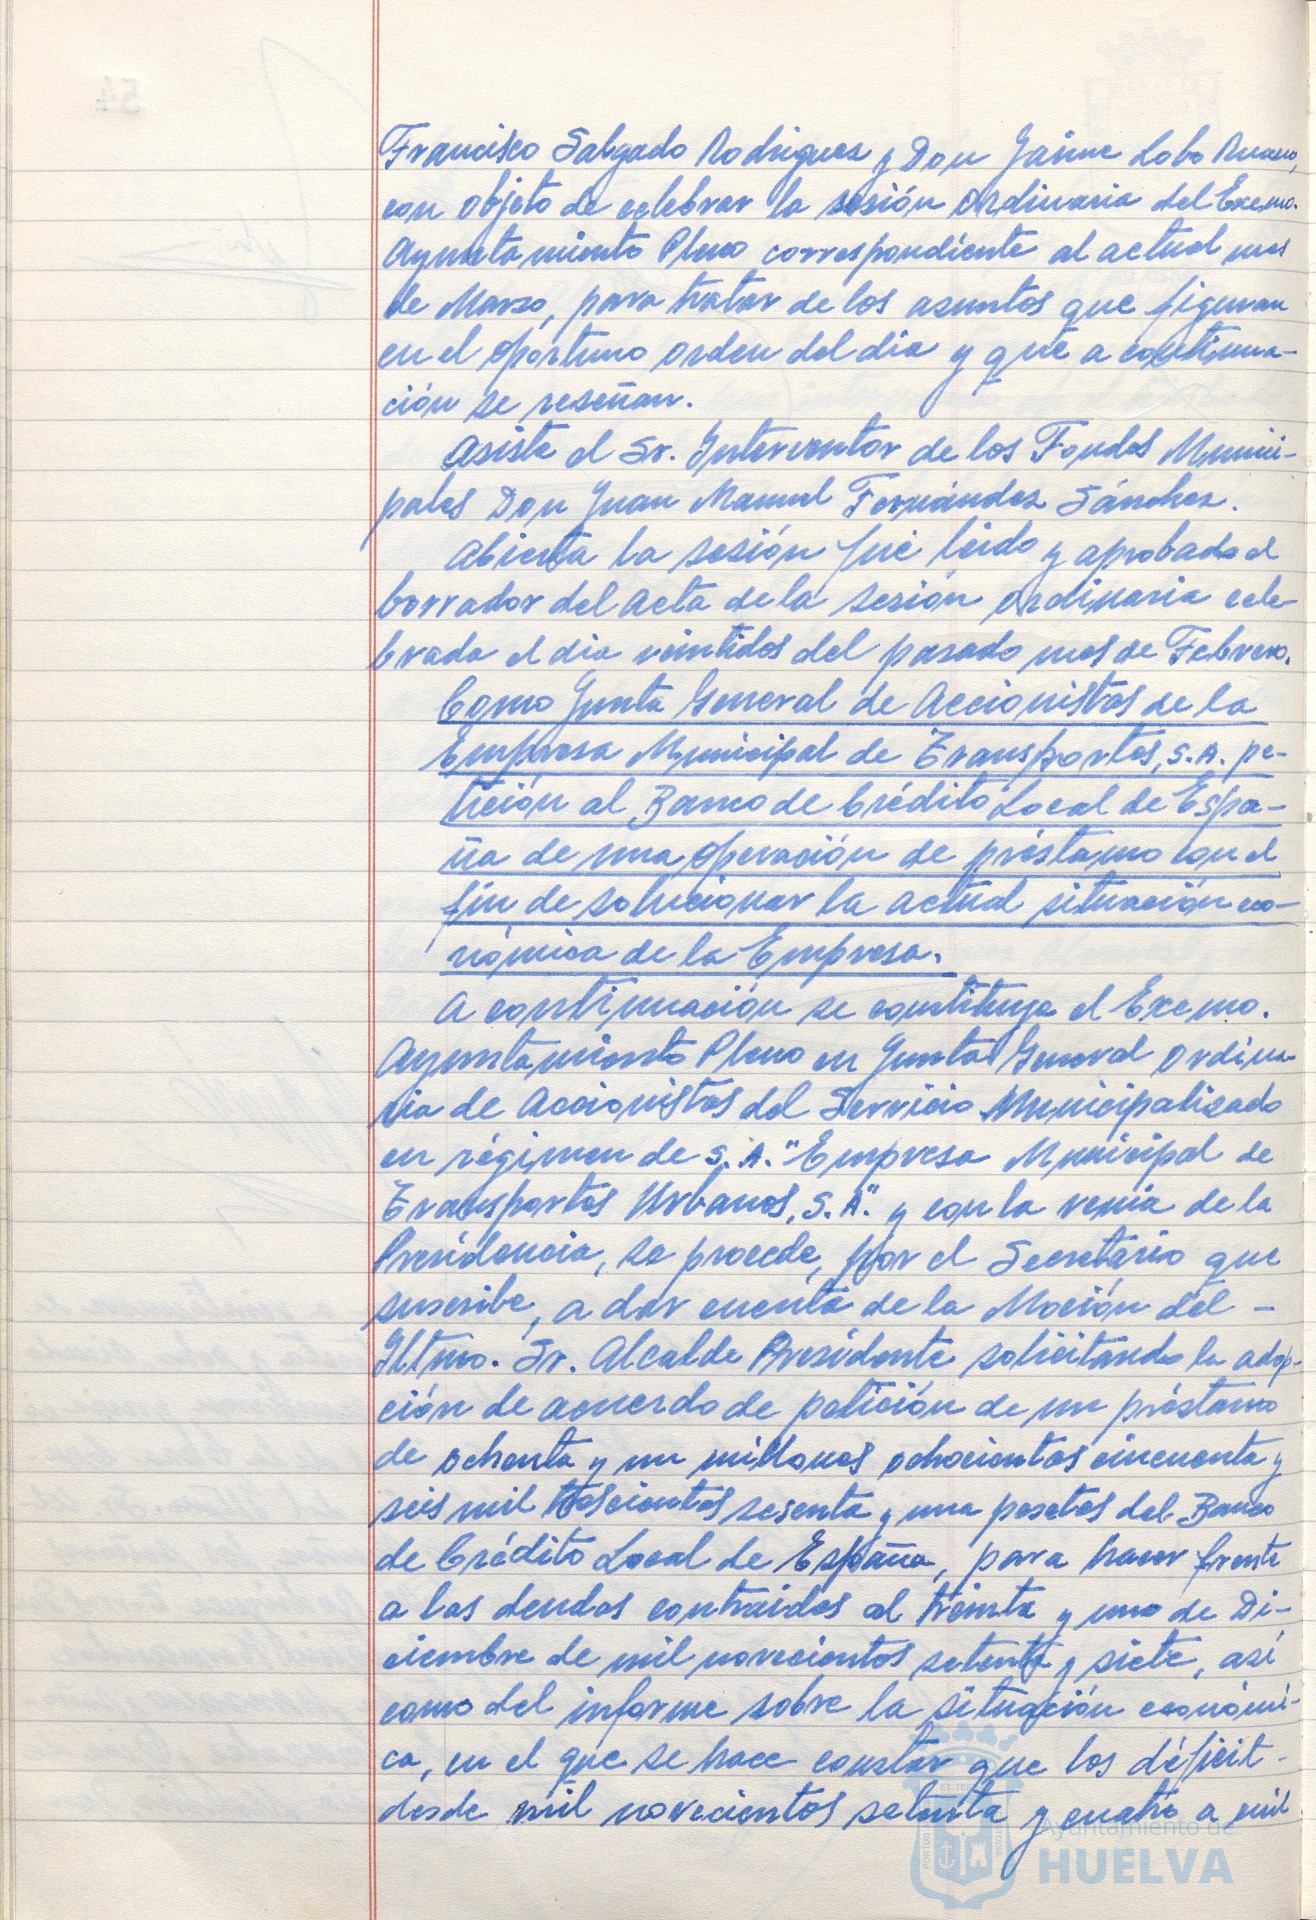 Francisco Salgado Rodriguez y Don Jaime Lobo
con objeto de celebrar la sesión ordinaria del Excmo.
Ayuntamiento Pleno correspondiente al actual mes
de Marzo, para tratar de los asuntos que figuran
en el oportuno orden del dia y que a continua-
ción se reseñan.
Asiste el Sr. Interventor de los Fondos Munici-
pales Don Juan Manuel Fernández Sánchez.
Abierta la sesión fué leido y aprobado el
borrador del acta de la sesión ordinaria cele-
brada el dia veintidos del pasado mes de Febrero.
Como Junta General de Accionistas de la
Empresa Municipal de Transportes, S.A. pe-
tición al Banco de Crédito Local de Espa-
ña de una operación de préstamo con el
fin de solucionar la actual situación eco-
nómica de la Empresa.
A continuación se constituye el Excmo.
Ayuntamiento Pleno en Junta General Ordina-
ria de Accionistas del Servicio Municipalizado
en régimen de S.A. "Empresa Municipal de
Transportes Urbanos, S.A." y con la venia de la
Presidencia, se procede, por el Secretario que
suscribe, a dar cuenta de la Moción del -
Iltmo. Sr. Alcalde Presidente solicitando la adop-
ción de acuerdo de petición de un préstamo
de ochenta y un millones ochocientas cincuenta y
seis mil trescientas sesenta y una pesetas del Banco
de Crédito Local de España, para hacer frente
a las deudas contraidas al treinta y uno de Di-
ciembre de mil novecientos setenta y siete, así
como del informe sobre la situación económi-
ca, en el que se hace constar que los déficit -
desde mil novecientos setenta y cuatro a mil
Ayuntamiento de
HUELVA